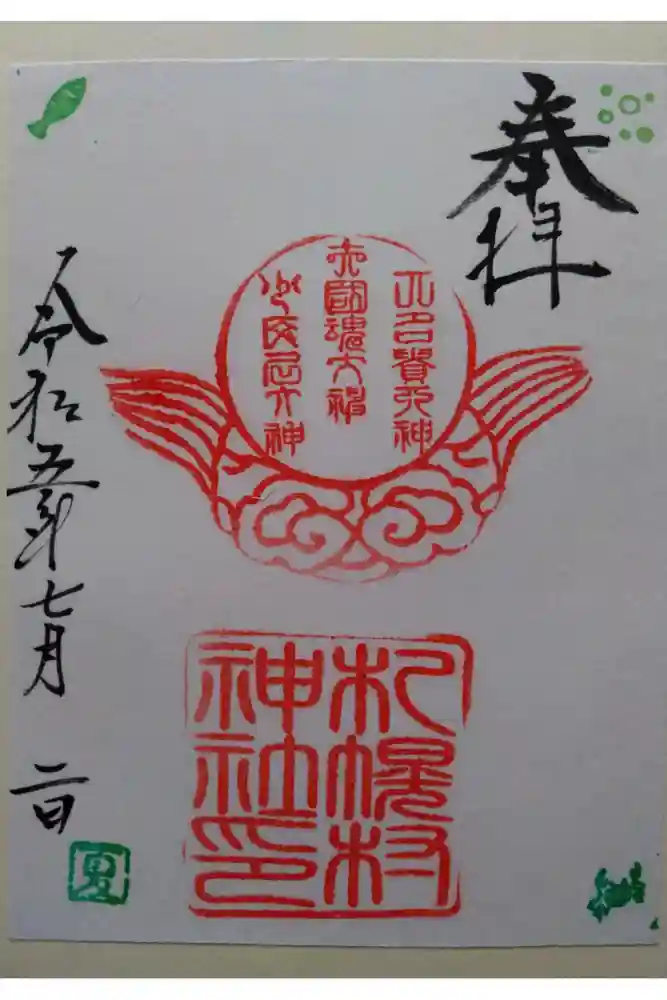 奉拝
大名貴大神
大國魂大神
大神
札幌村
神社印
令和五年七月二日
夏